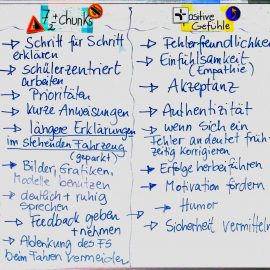 7 ± 2 chunks
→ Schritt für Schritt
erklären
→ Schülerzentriert
arbeiten
→ Prioritäten
→ kurze Anweisungen
→ längere Erklärungen
im stehenden Fahrzeug
(geparkt)
→ Bilder, Grafiken,
Modelle benutzen
→ deutlich + ruhig
sprechen
→ Feedback geben
+ nehmen
→ Ablenkung des FS
beim Fahren vermeiden
Positive
Gefühle
→ Fehlerfreundlichkeit
→ Einfühlsamkeit
(Empathie)
→ Akzeptanz
→ Authentizität
→ wenn sich ein
Fehler andeutet früh-
zeitig korrigieren
→ Erfolge herbeiführen
→ Motivation fördern
→ Humor
→ Sicherheit vermitteln